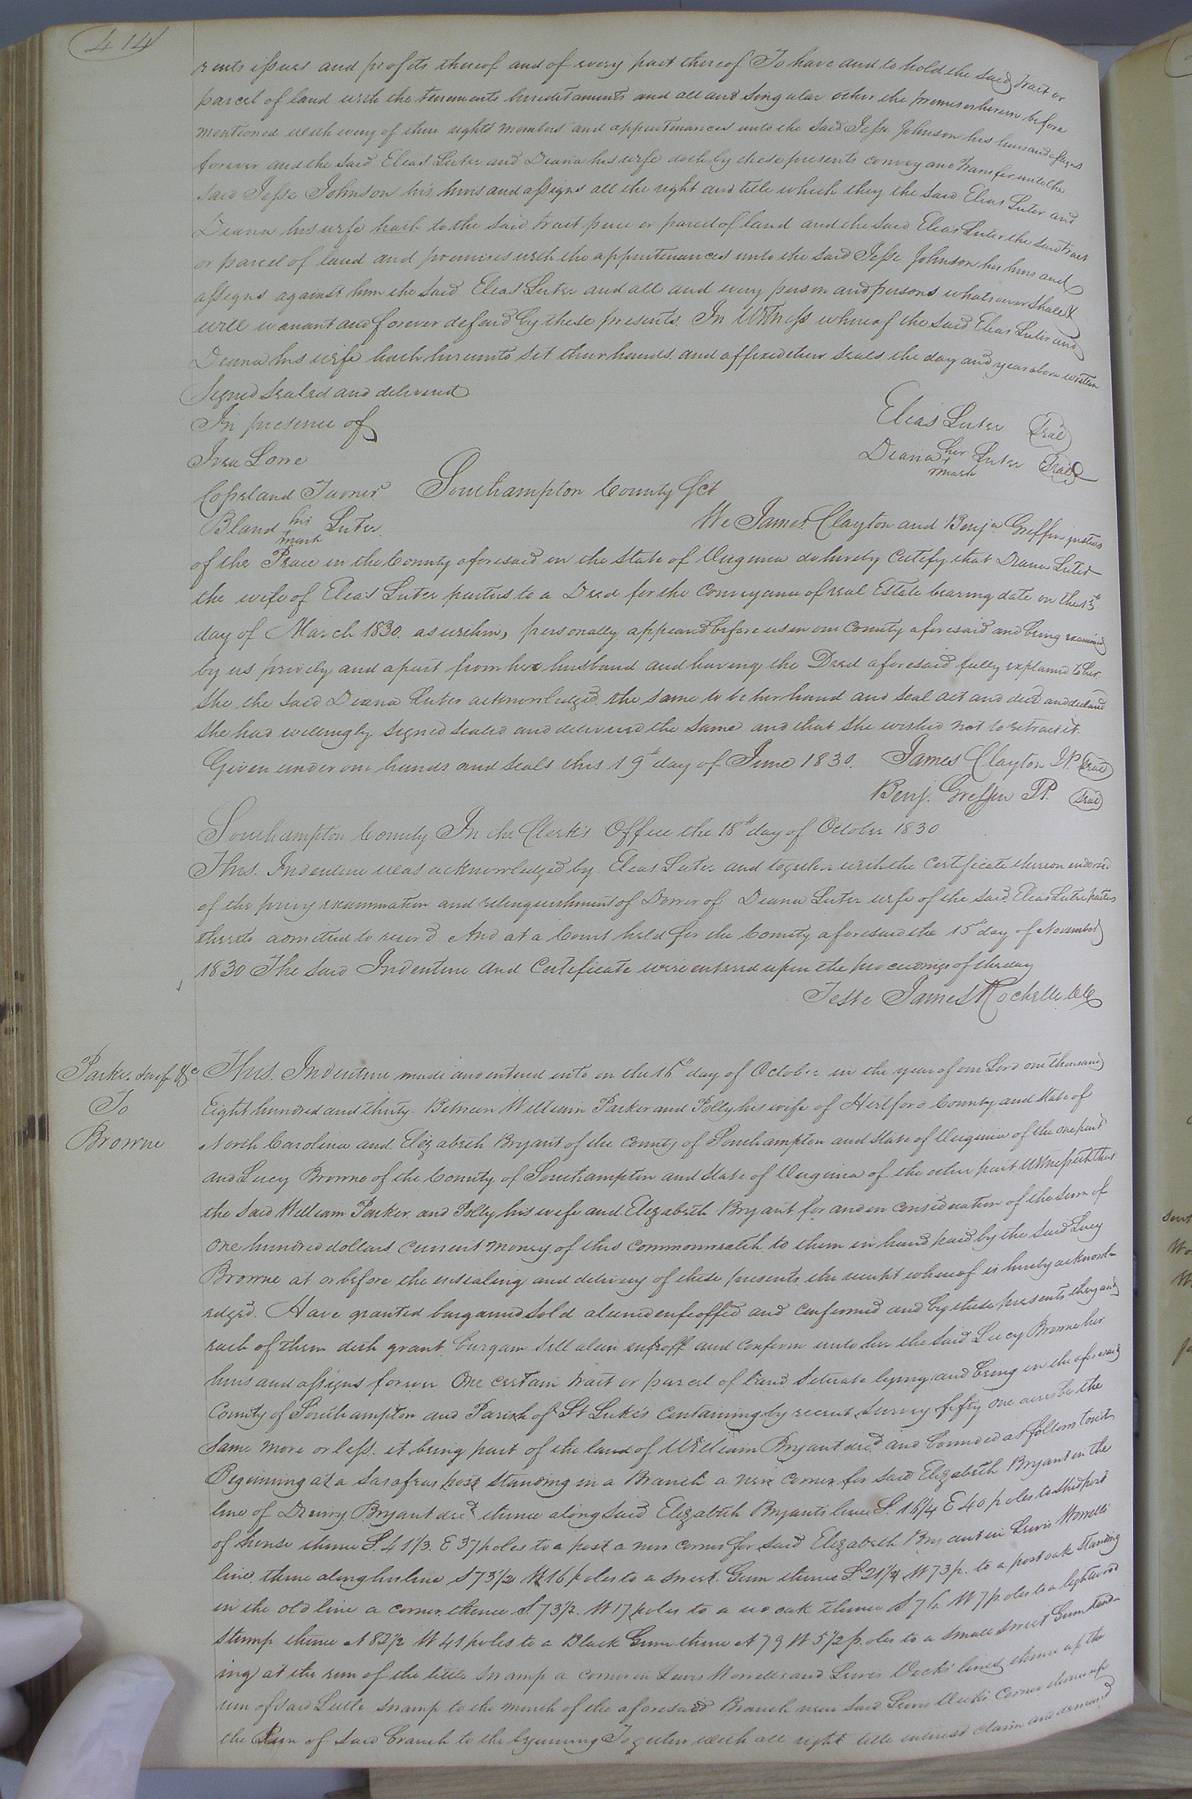 414
rents issues and profits thereof and of every part thereof To have and to hold the said tract or
parcel of land with the tenements hereditaments and all and singular other the premises herein before
mentioned with every of their rights members and appurtenances unto the said Jesse Johnson his heirs and assigns
forever and the said Elias Luter and Deana his wife doth by these presents convey and transfer unto the
said Jesse Johnson his heirs and assigns all the right and title which they the said Elias Luter and
Deana his wife hath to the said tract piece or parcel of land and the said Elias Luter the said tract
or parcel of land and premises with the appurtenances unto the said Jesse Johnson his heirs and
assigns against him the said Elias Luter and all and every person and persons whatsoever shall &
will warrant and forever defend by these presents. In Witness whereof the said Elias Luter and
Deana his wife hath hereunto set their hands and affixed their seals the day and year above written
Signed sealed and delivered
In presence of
Elias Luter Seal
Deana her mark Luter Seal
Copeland Turner
Bland his mark Luter
Southampton County Sct
We James Clayton and Benja Griffin justices
of the Peace in the County aforesaid in the State of Virginia do hereby Certify that Deana Luter
the wife of Elias Luter parties to a Deed for the Conveyance of real Estate bearing date on the 15th
day of March 1830. as within, personally appeared before us in our County aforesaid and being examined
by us privily and apart from her husband and having the Deed aforesaid fully explained to her
She the said Deana Luter acknowledged the same to be her hand and seal act and deed and declared
She had willingly signed sealed and delivered the same and that She wished not to retract it.
Given under our hands and seals this 19th day of June 1830. James Clayton J.P. Seal
Benj. Griffin J.P. Seal
Southampton County In the Clerk's Office the 18th day of October 1830
This Indenture was acknowledged by Elias Luter and together with the Certificate thereon endorsed
of the privy examination and relinquishment of Dower of Deana Luter wife of the said Elias Luter parties
thereto admitted to record And at a Court held for the County aforesaid the 15th day of November
1830 The said Indenture and Certificate were entered upon the proceedings of the day
Teste James Rochelle
Parker
To
Browne
This Indenture made and entered into on the 16th day of October in the year of our Lord one thousand
Eight hundred and thirty. Between William Parker and Polly his wife of Hertford County and State of
North Carolina and Elizabeth Bryant of the County of Southampton and State of Virginia of the one part
and Lucy Browne of the County of Southampton and State of Virginia of the other part Witnesseth that
the said William Parker and Polly his wife and Elizabeth Bryant for and in consideration of the sum of
One hundred dollars current money of this commonwealth to them in hand paid by the said Lucy
Browne at or before the ensealing and delivery of these presents the receipt whereof is hereby acknowl-
edged. Have granted bargained sold aliened enfeoffed and confirmed and by these presents they and
each of them doth grant bargain sell alien enfeoff and confirm unto her the said Lucy Browne her
heirs and assigns forever One certain tract or parcel of land situate lying and being in the aforesaid
County of Southampton and Parish of St Luke's containing by recent survey fifty one acres be the
same more or less. it being part of the land of William Bryant decd and bounded as follows
Beginning at a Sasafras post standing in a Branch a new corner for said Elizabeth Bryant in the
line of Drewry Bryant decd thence along said Elizabeth Bryants line S. 16¼ E 40 poles to
of thence S. 41⅓ E 37 poles to a post a new corner for said Elizabeth Bryant in Lewis Worrells
line thence along his line S 73½ W 16 poles to a sweet Gum thence S 21¼ W 73 p. to a post oak standing
in the old line a corner thence S. 73½ W 17 poles to a red oak thence W 7 poles to a lightwood
Stump thence N 82½ W 41 poles to a Black Gum thence N 79 W 5½ poles to a small sweet Gum stand-
ing at the run of the little swamp a corner in Lewis Worrells and Lewis lines, thence up the
run of said Little swamp to the mouth of the aforesaid Branch near said Lewis Corner thence up
the Run of said branch to the beginning Together with all right title interest claim and demand